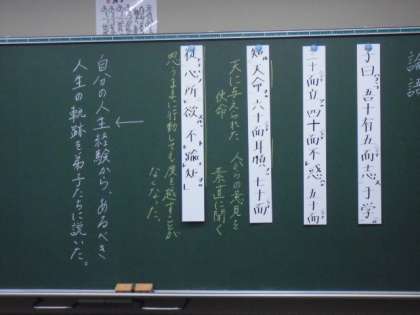 論語
子曰、吾十有五而志于学、
三十而立、四十而不惑、五十而
知天命、六十而耳順、七十而
天に与えられた 人々の意見を
使命 素直に聞く
従心所欲、不踰矩。
思うままに行動しても度を越すことが
なくなった。
←
自分の人生経験から、あるべき
人生の軌跡を弟子たちに説いた。